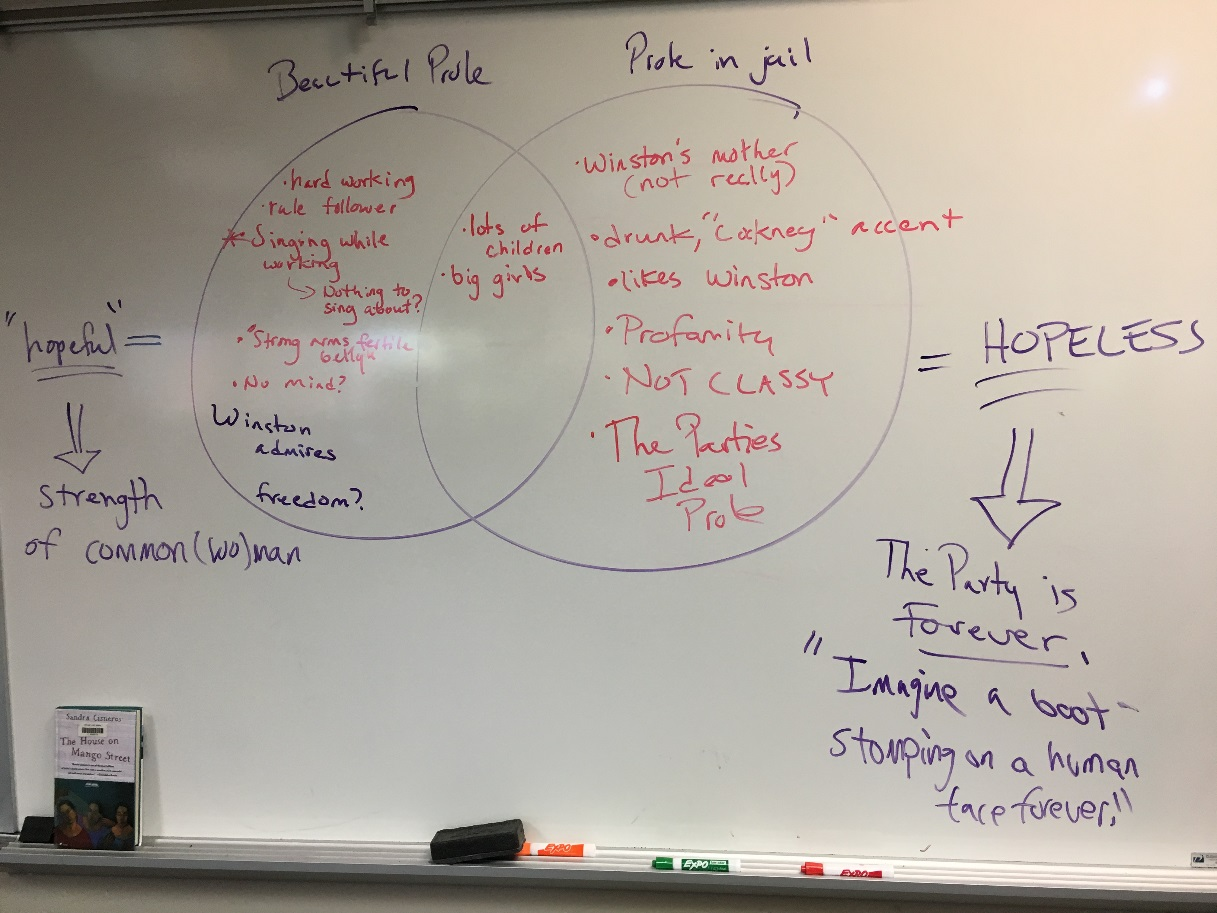 Beautiful Prole
Prole in jail
·hard working
·rule follower
* Singing while
working
Nothing to
sing about?
• Strong arms fertile
belly
• No mind?
Winston
admires
freedom?
·lots of
children
·big girls
·Winston's mother
(not really)
•drunk, "Cockney" accent
•likes Winston
·Profamity
·NOT CLASSY
·The Parties
Ideal
Prole
"hopeful" =
strength
of common(wo)man
= HOPELESS
The Party is
Forever.
"Imagine a boot
stomping on a human
face forever."
Sandra Cisneros
The House on
Mango Street
EXPO
EXPO
EXPO